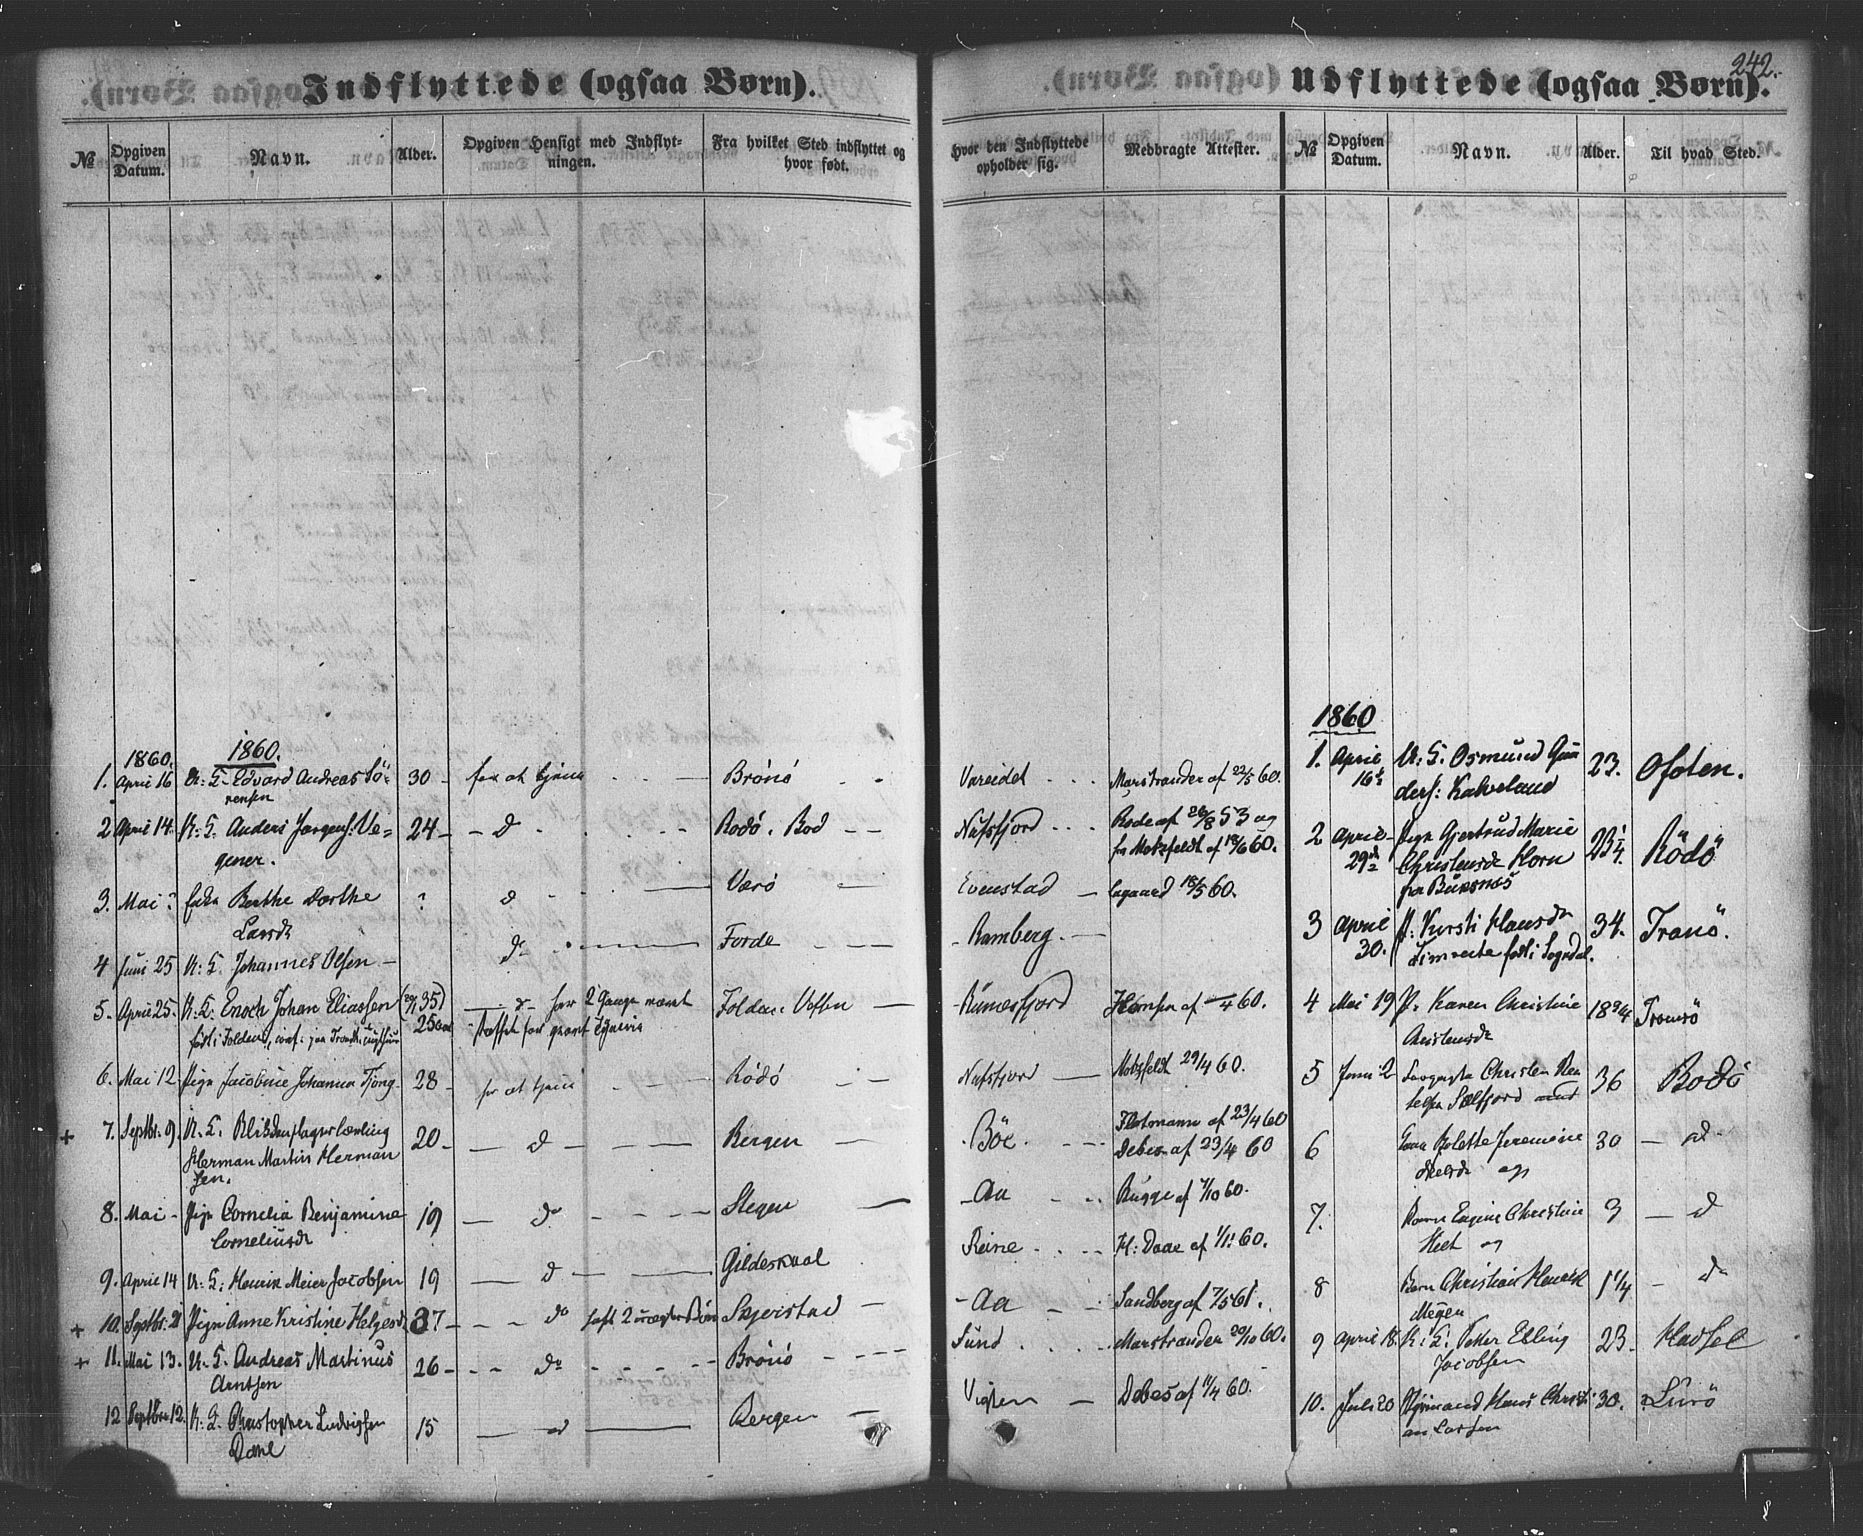 242.
Indflyttede (ogsaa Børn).
№ Opgiven Datum. Navn. Alder. Opgiven Hensigt med Indflyt-
ningen. Fra hvilket Sted indflyttet og
hvor født.
1860. 1860.
1. April 16 U: K. Edvard Andreas Sö- 30 - for at tjene - Brönö
rensen
2 April 14. U: K. Anders Jørgens: We- 24 - d - Rödö. Bod
gener.
3. Mai ? Enke Berthe Dorthe ? d - Værö
Larsdr
4 Juni 25 U: K. Johannes Olsen - do - Forde
5. April 25. U: K. Enoch Johan Eliassen 35) - d - for 2 Gange været
Folden
født i Folden, conf: 25
6. Mai 12 Pige Jacobine Johanna Tjong 28 - for at tjene Rödö
7. Septbr. 9. U. K. Blikkenslagerlærling 20 - d - Bergen
Herman Martin Herman
sen.
8. Mai - Pige Cornelia Benjamine 19 - do - Stegen
Corneliusdr
9. April 14 U: K: Henrik Meier Jacobsen 19 - d - Gildeskaal
10. Septbr. 21 Pige Anne Kristine Helgesdr 37 - do havt 2 uægte Børn Skjerstad
11. Mai 13. U. K. Andreas Martinus 26 - do - Brönö
Arntsen
12 Septbr 12. U. K. Christopher Ludvigsen 15 - d - Bergen
Dahl
Udflyttede (ogsaa Børn).
Hvor den Indflyttede
opholder sig. Medbragte Attester. № Opgiven
Datum. Navn. Alder. Til hvad Sted.
Vareidet Marstrander af 22/5 60.
Nufsfjord Rode af 26/8 53 og
fra Motzfeldt af 18/6 60.
Evenstad - Lagaard 18/5 60.
Ramberg. -
60.
Nufsfjord - Motzfeldt 29/4 60.
Böe Flotmann af 23/4 60
Debes af 23/4 60
Aa Rugge af 7/10 60.
Reine H: Daae af 1/11 60.
Aa Sandberg af 7/5 61.
Sund Marstrander 20/10 60.
Vigten - Debes af 11/4 60.
1860
1. April U: K. Osmund Gun 23. Ofoten.
16d ders: Kalveland
2 April - Pige Gjertrud Marie 23 1/4. Rödö
29de Christensdr Horn
fra Buxnes
3 April P. Kirsti Hansdr 34. Tranö.
30. født i Sogndal.
4 Mai 19 P. Karen Christine 18 3/4 Tromsö
Christensdr
5 Juni 2 Christen 36 Bodö
6 Kone Kolette Jeremine 30 - d -
og
7. Barn Eugine Christine 3 - d
og
8 Barn Christian Henrik 1 1/4 - do
Megen
9 April 18. U. K. Peter Elling 23. Hadsel
Jacobsen
10. Juli 20 Hans Christi 30. Lurö
an Larsen